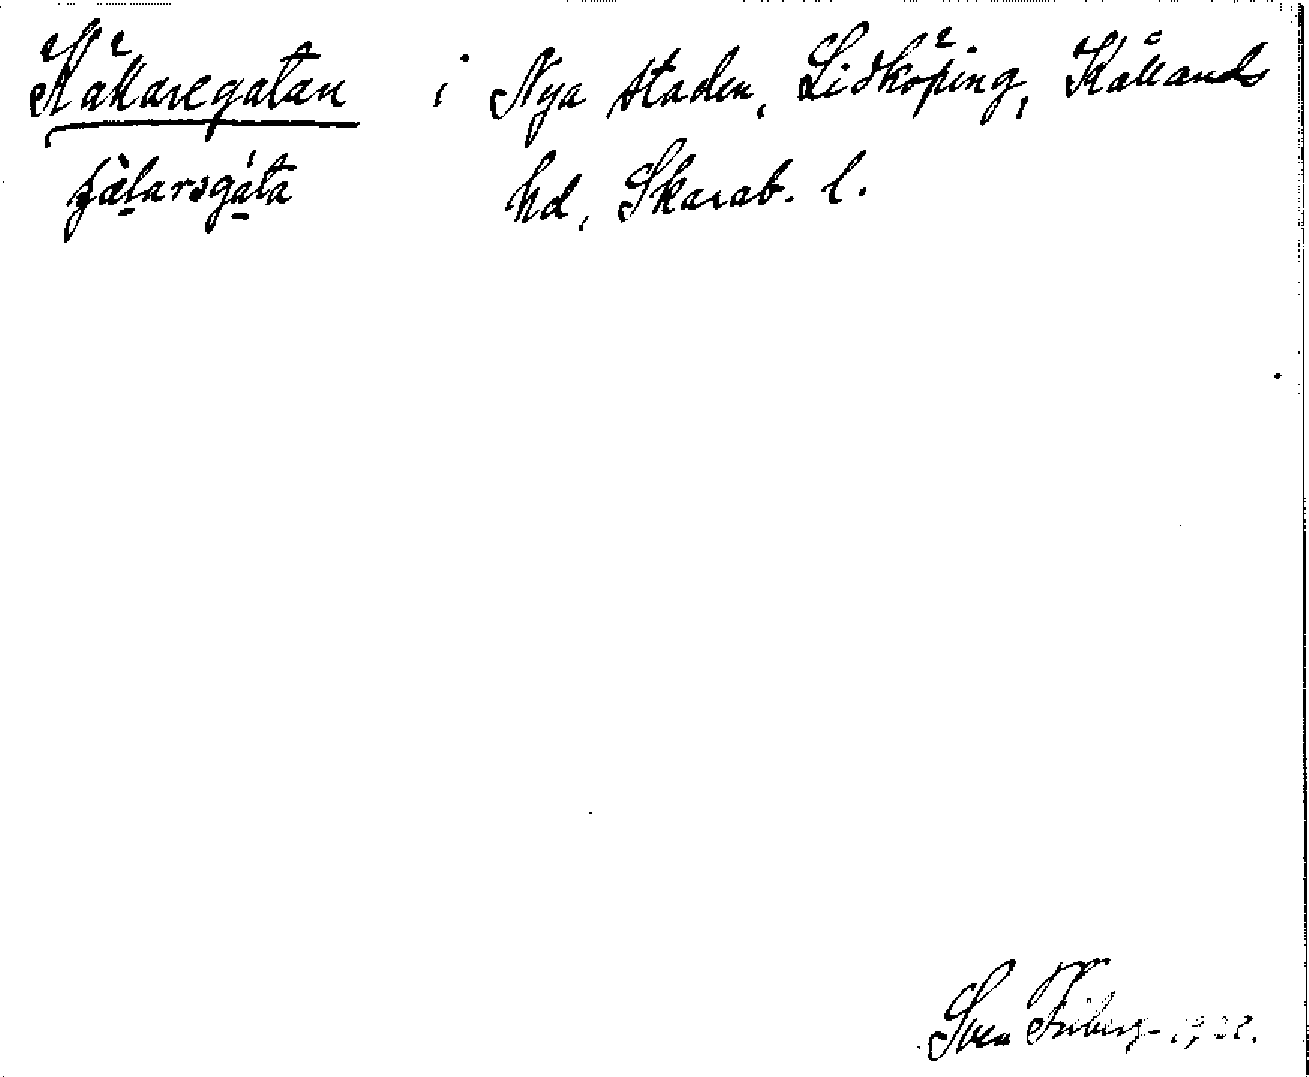 Källaregatan i Nya staden, Lidköping, Kållands
hd, Skarab. l.
Sven Friberg